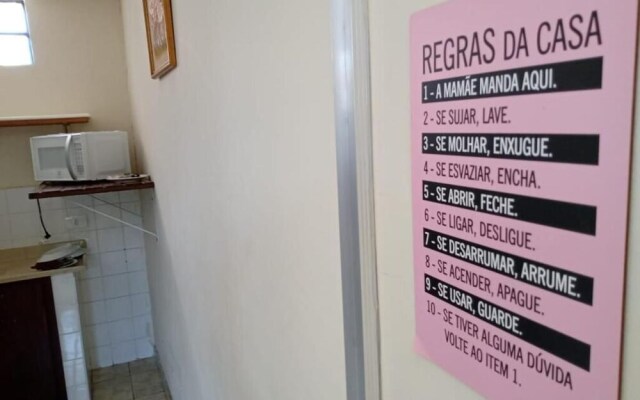 REGRAS DA CASA
1 - A MAMÃE MANDA AQUI.
2 - SE SUJAR, LAVE.
3 - SE MOLHAR, ENXUGUE.
4 - SE ESVAZIAR, ENCHA.
5 - SE ABRIR, FECHE.
6 - SE LIGAR, DESLIGUE.
7 - SE DESARRUMAR, ARRUME.
8 - SE ACENDER, APAGUE.
9 - SE USAR, GUARDE.
10 - SE TIVER ALGUMA DÚVIDA
VOLTE AO ITEM 1.